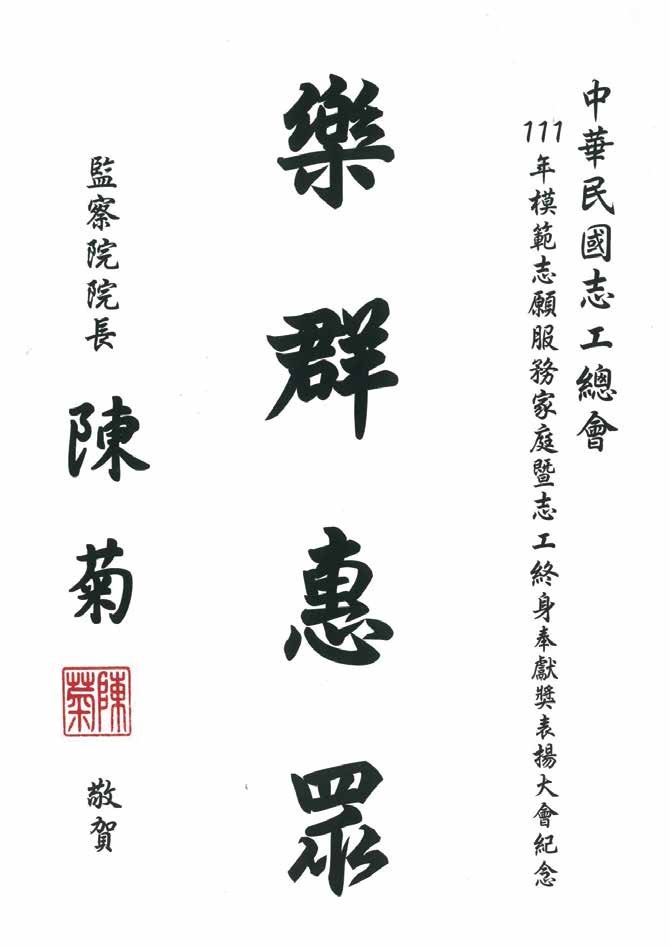 中華民國志工總會
111年模範志願服務家庭暨志工終身奉獻獎表揚大會紀念
樂群惠眾
監察院院長 陳菊 敬賀
陳菊